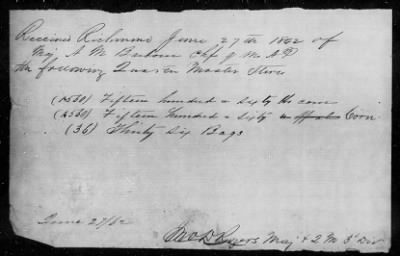 Received Richmond June 27th 1862 of
Maj A M Barbour Chf Q M A P
the following Quarter Master Stores
(1560) Fifteen hundred & sixty lbs corn
(1560) Fifteen hundred & sixty Corn
(36) Thirty Six Bags
June 27/62
Maj & Q M 3d Div